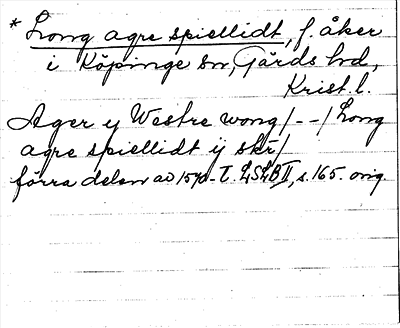 * Long agre spiellidt, f. åker
i Köpinge sn, Gärds hd,
Krist. l.
Ager y Westre wong /--/ Long
agre spiellidt ij skr/
förra delen av 1570-t. LSLB II, s. 165. orig